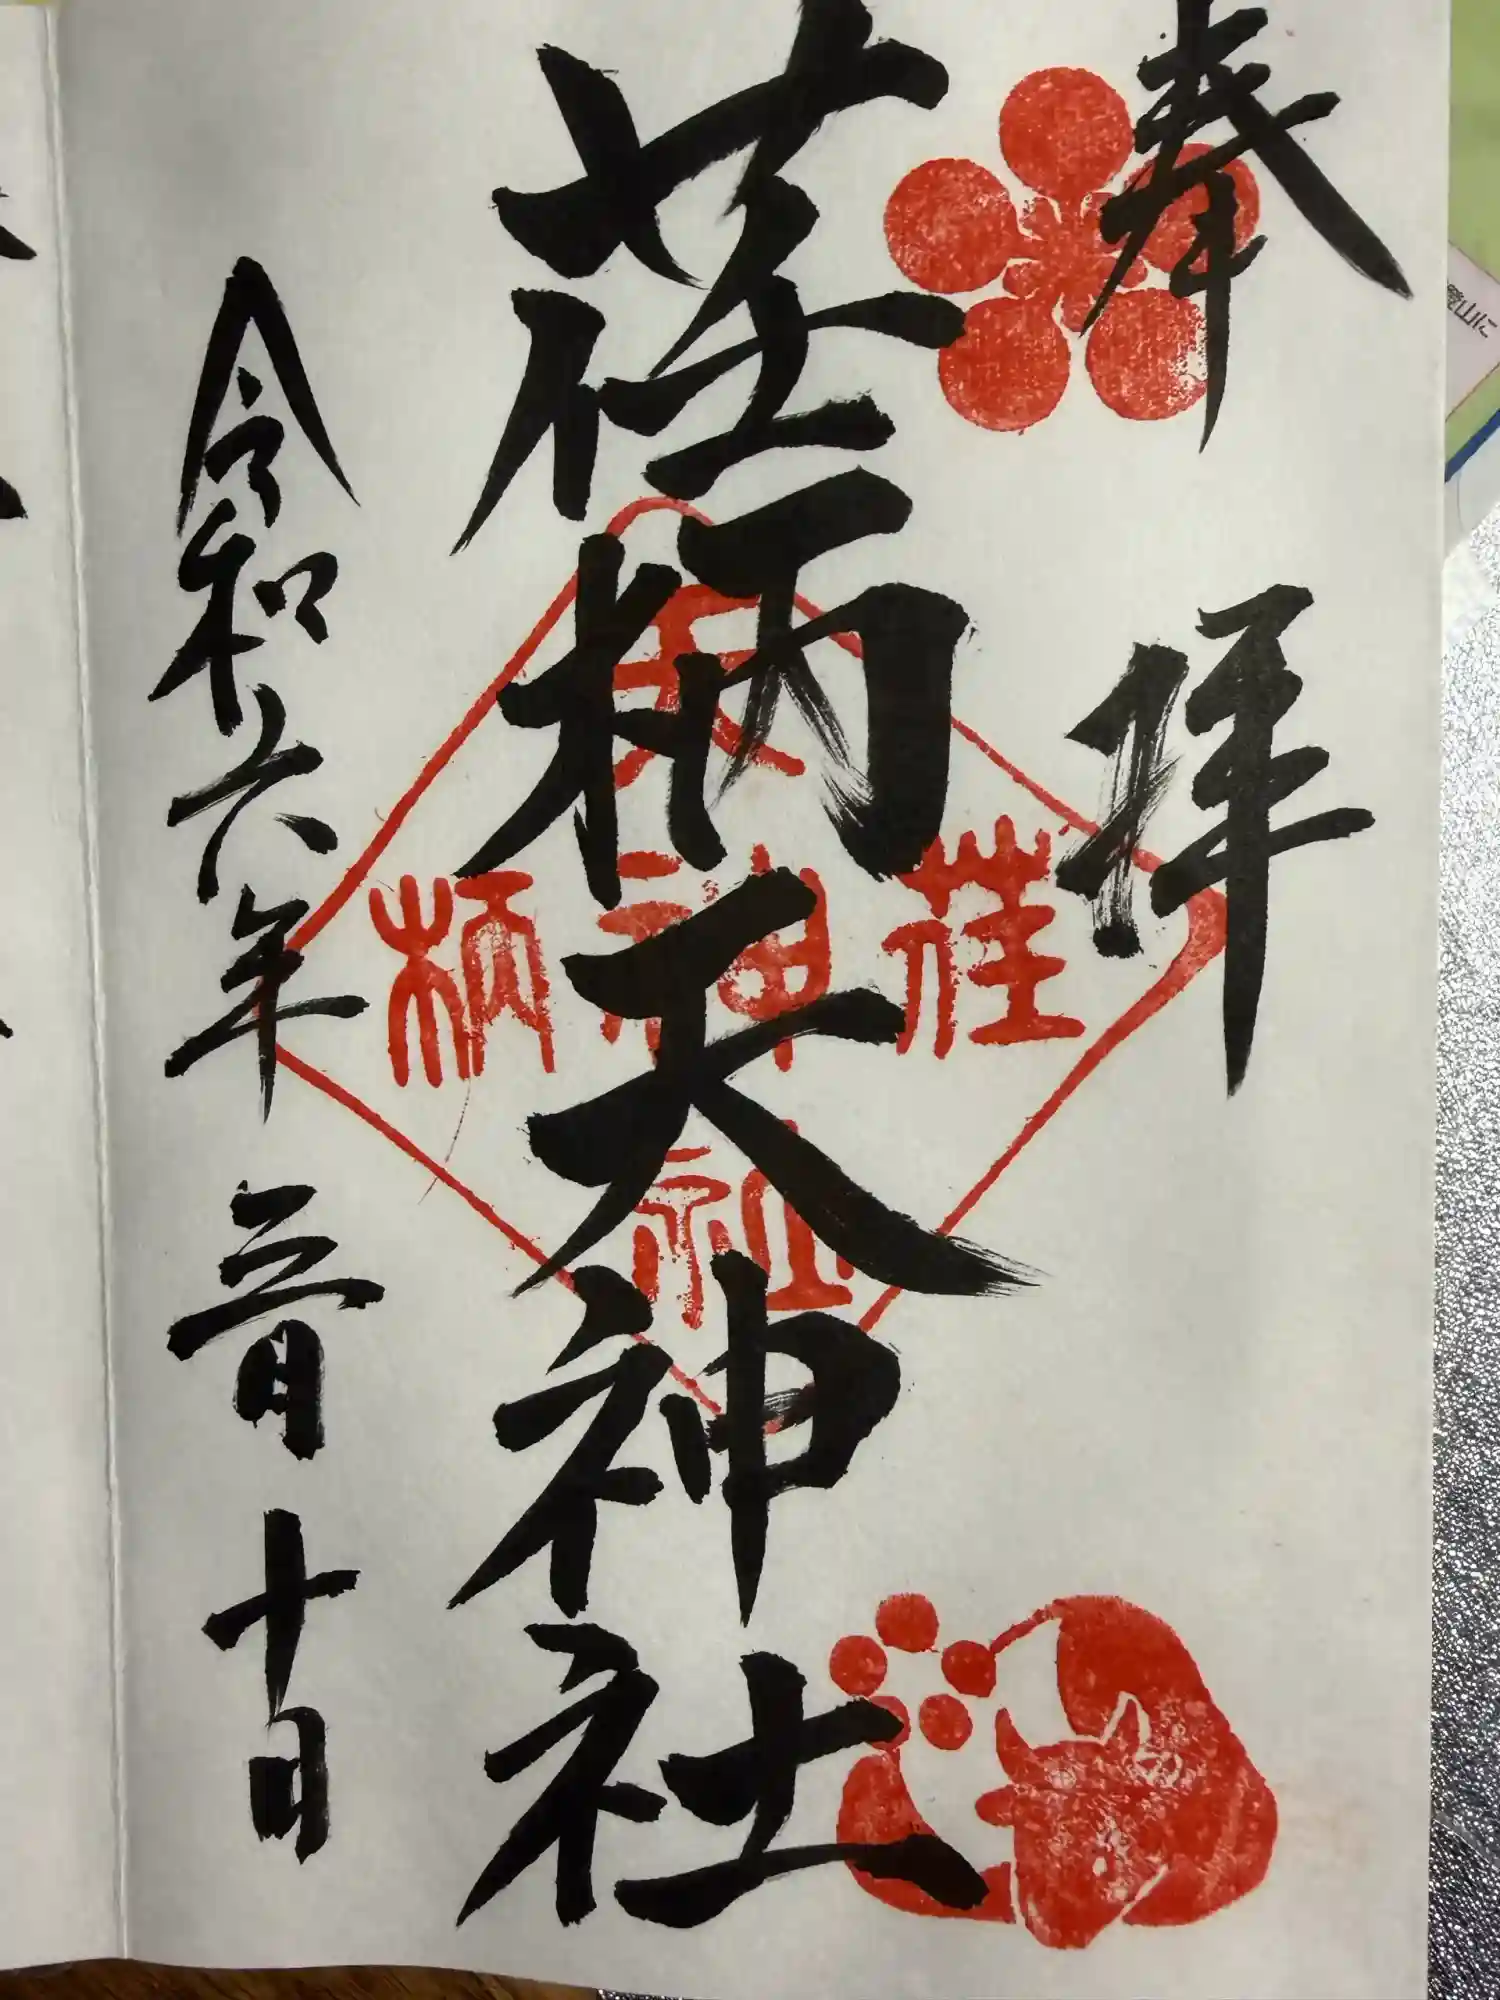 奉拝
荏柄天神社
天
荏神柄
社
令和六年 三月 十日
登山に